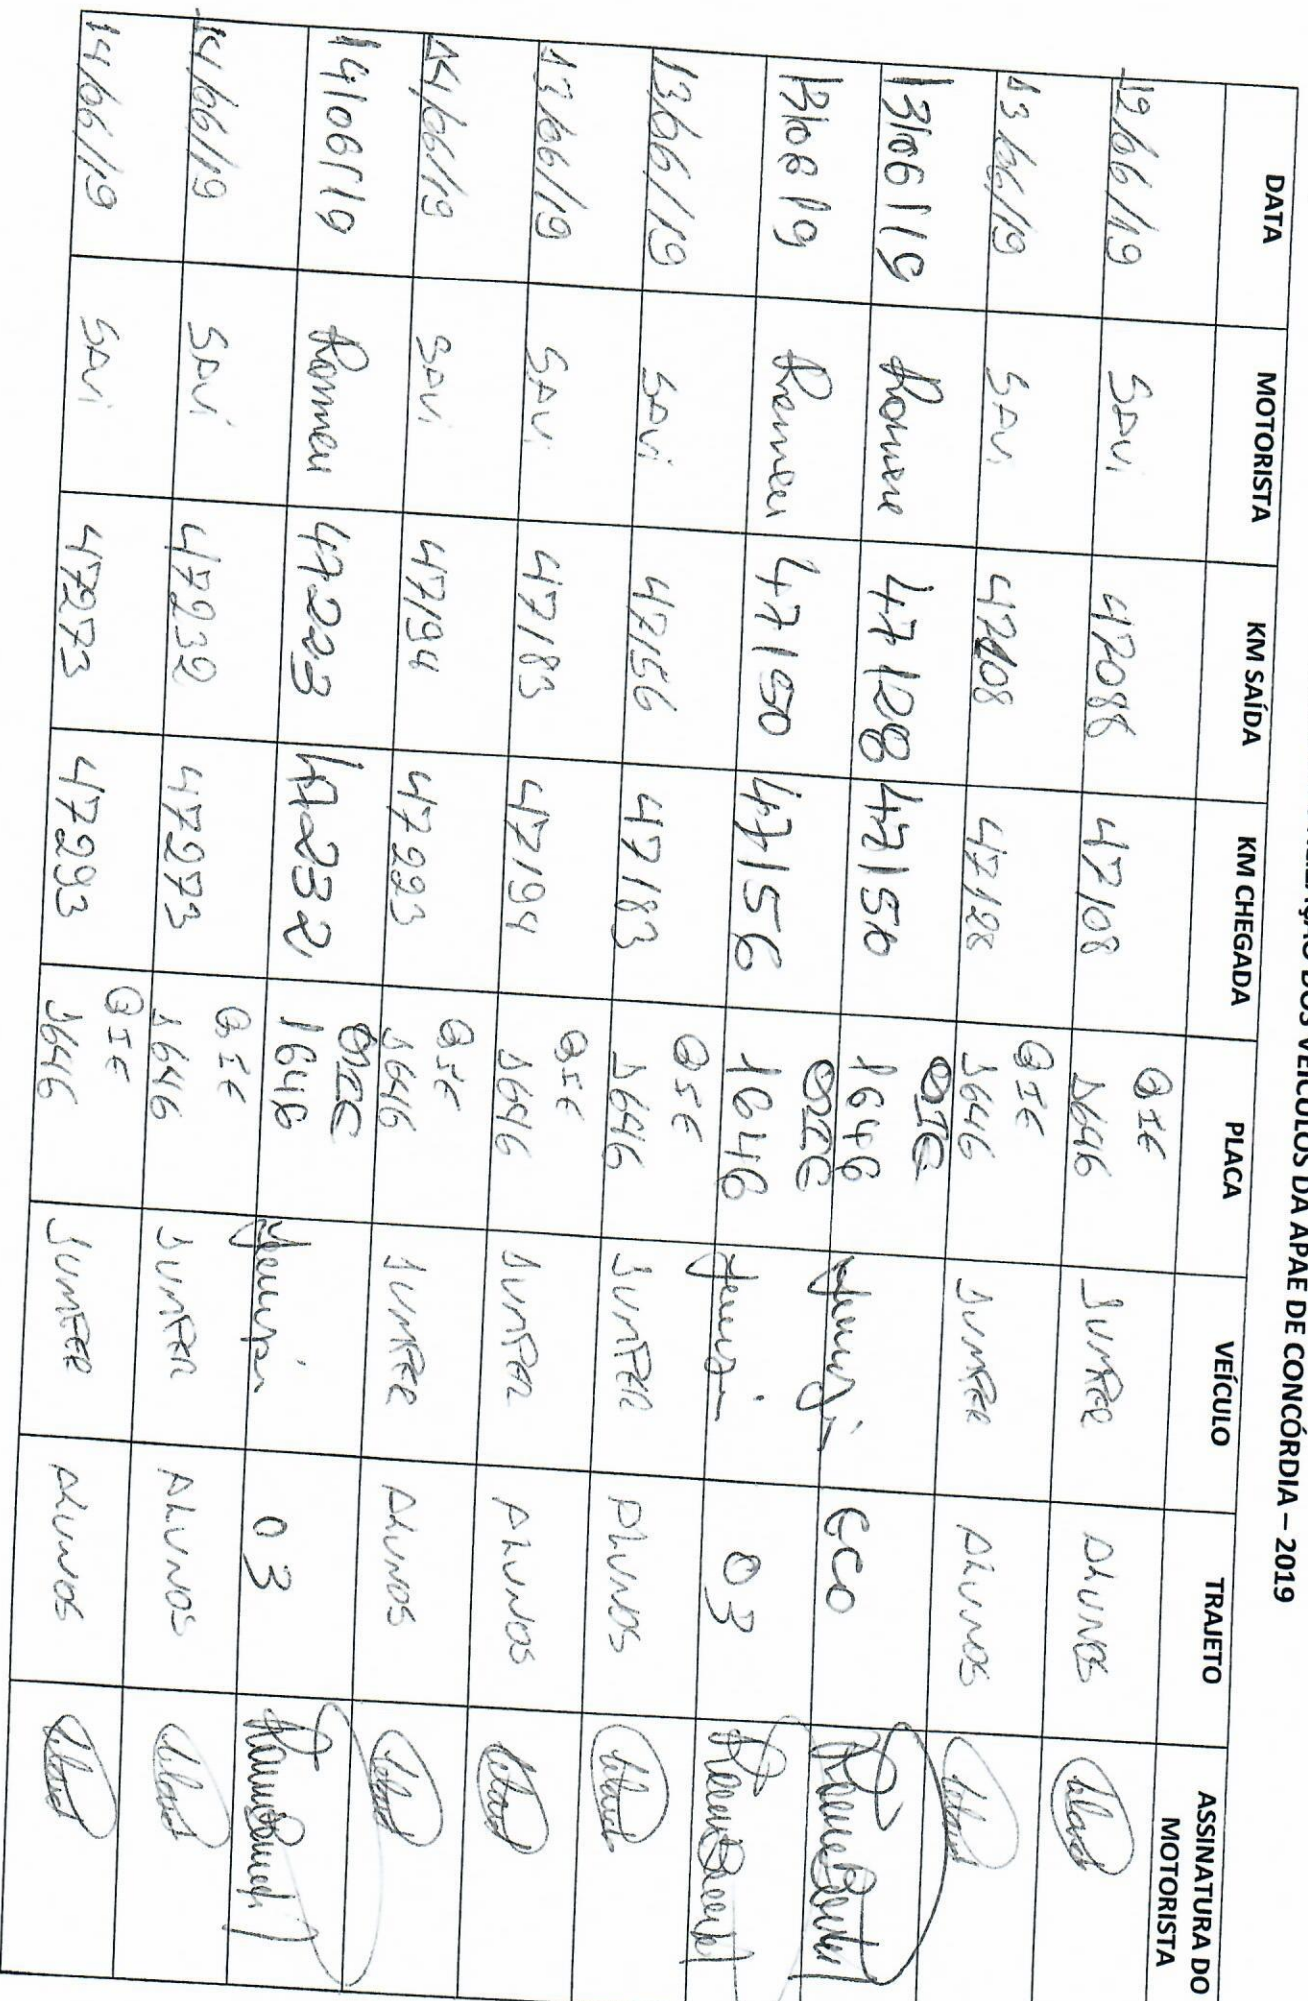 DOS VEÍCULOS DA APAE DE CONCÓRDIA – 2019
DATA MOTORISTA KM SAÍDA KM CHEGADA PLACA VEÍCULO TRAJETO ASSINATURA DO MOTORISTA
12/06/19 SAVI 47088 47108 QIE 1646 JUMPER ALUNOS
13/06/19 SAVI 47108 47128 QIE 1646 JUMPER ALUNOS
13/06/19 Romeu 47128 47150 QIE 1646 ECO
13/06/19 Romeu 47150 47156 QIE 1646 03
13/06/19 SAVI 47156 47183 QIE 1646 JUMPER ALUNOS
13/06/19 SAVI 47183 47194 QIE 1646 JUMPER ALUNOS
14/06/19 SAVI 47194 47223 QIE 1646 JUMPER ALUNOS
14/06/19 Romeu 47223 47232 QIE 1646 03
14/06/19 SAVI 47232 47273 QIE 1646 JUMPER ALUNOS
14/06/19 SAVI 47273 47293 QIE 1646 JUMPER ALUNOS